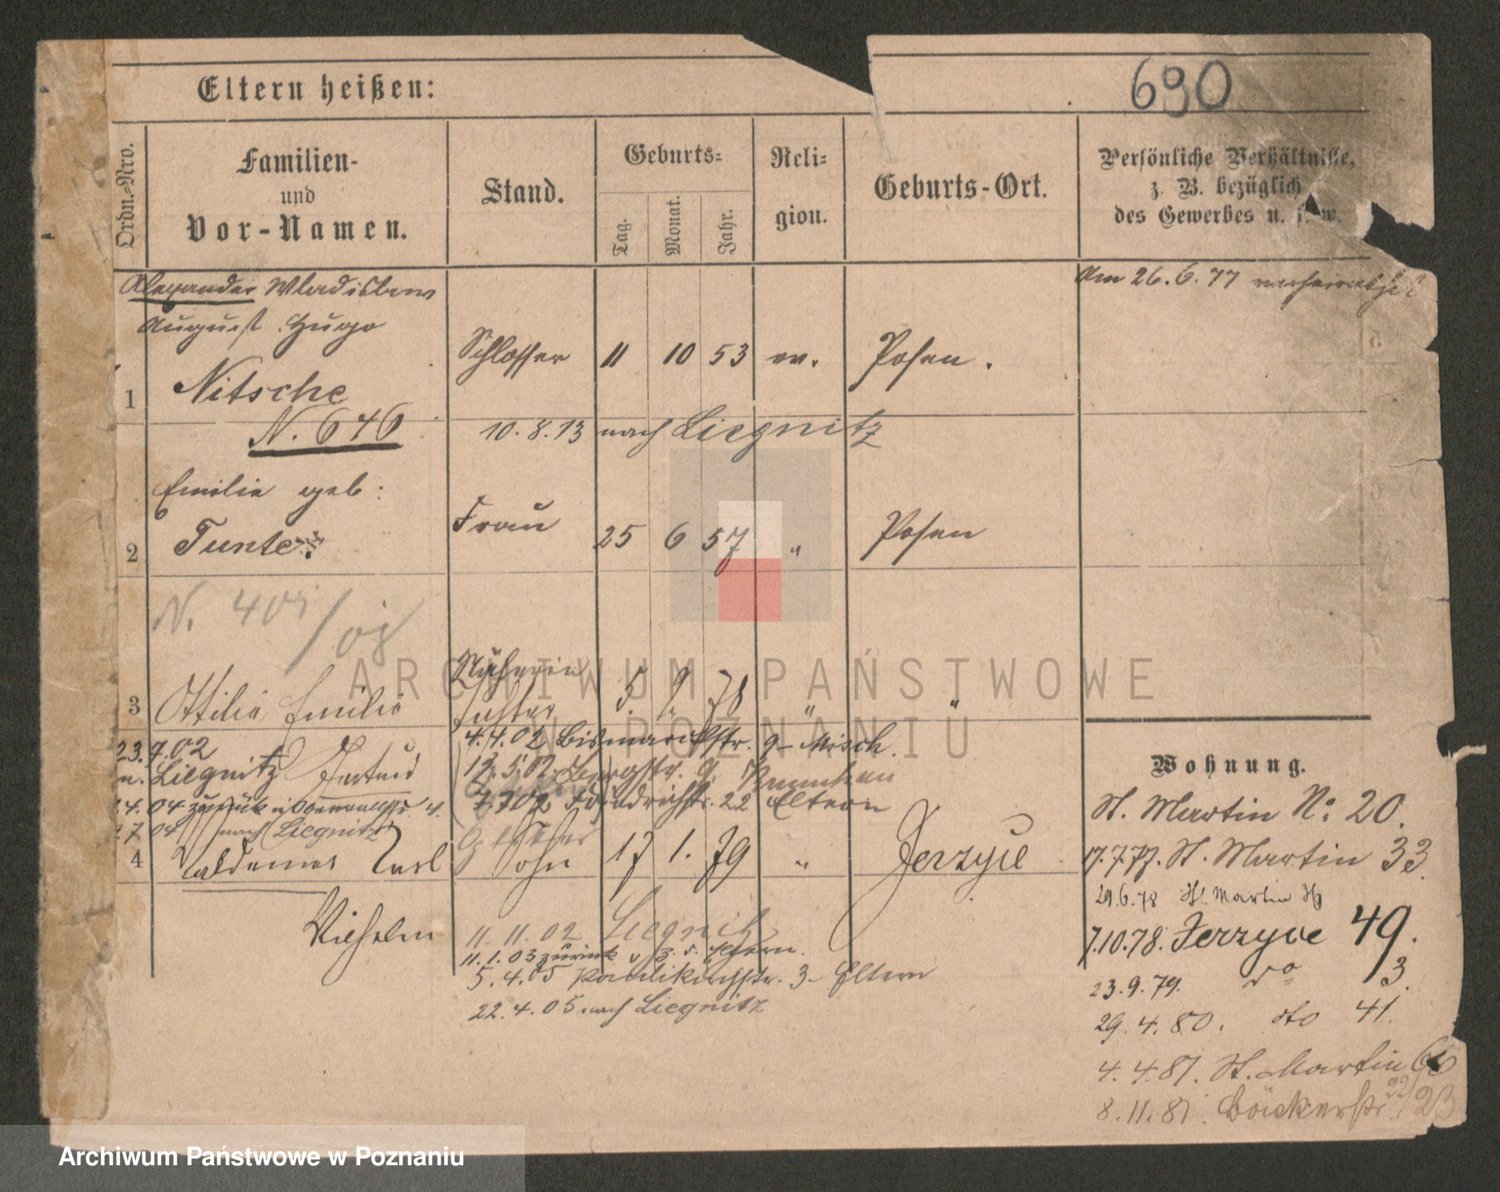 Eltern heißen:
690
Ordn.-Nro.
Familien-
und
Vor-Namen.
Stand.
Geburts-
Tag.
Monat.
Jahr.
Reli-
gion.
Geburts-Ort.
Persönliche Verhältnisse,
z. B. bezüglich
des Gewerbes u. s. w.
Alexander Wladislaus
August Hugo
Am 26.6.77 verheirathet
1 Nitsche Schlosser 11 10 53 ev. Posen.
N. 646 10.8.13 nach Liegnitz
Emilie geb:
2 Tunte Frau 25 6 57 " Posen
N. 401/08
Näherin
3 Ottilie Emilie Tochter 5. 9. 78 " "
23.7.02 4.4.02 Bismarckstr. 9 - Misch.
n. Liegnitz Gertrud 12.5.02 Bergstr. 9.
4.04 zurück 7.7.02 Friedrichstr. 22 Eltern
7.04 nach Liegnitz
4 Waldemar Karl Sohn 17 1. 79 " Jerzyce
Wilhelm
11.11.02 Liegnitz
11.1.03 zurück v. z. d. Eltern.
5.4.05 Paulikirchstr. 3 - Eltern
22.4.05 nach Liegnitz
Wohnung.
St. Martin No 20.
17.7.77. St. Martin 33.
29.6.78 St. Martin
7.10.78. Jerzyce 49.
23.9.79. do 3.
29.4.80. dto 41.
4.4.81. St. Martin 60
8.11.81. Bäckerstr. 22/23
ARCHIWUM PAŃSTWOWE
W POZNANIU
Archiwum Państwowe w Poznaniu